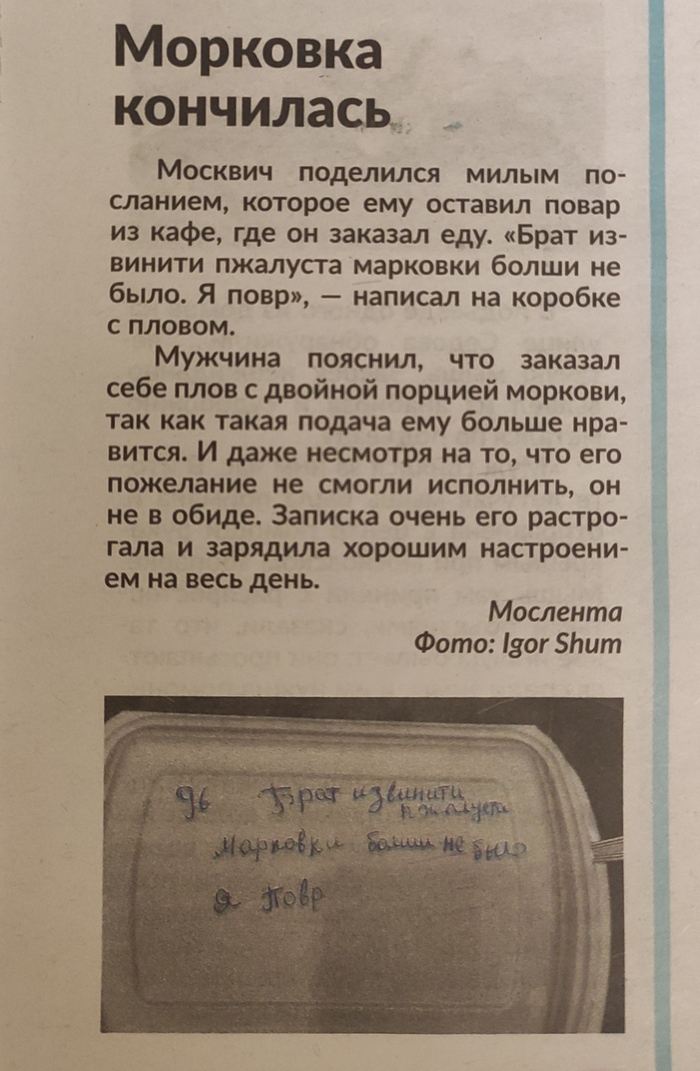 Морковка
кончилась
Москвич поделился милым по-
сланием, которое ему оставил повар
из кафе, где он заказал еду. «Брат из-
винити пжалуста марковки болши не
было. Я повр», — написал на коробке
с пловом.
Мужчина пояснил, что заказал
себе плов с двойной порцией моркови,
так как такая подача ему больше нра-
вится. И даже несмотря на то, что его
пожелание не смогли исполнить, он
не в обиде. Записка очень его растро-
гала и зарядила хорошим настроени-
ем на весь день.
Мослента
Фото: Igor Shum
96 Брат извинити
пжалуста
Марковки болши не было
Я Повр